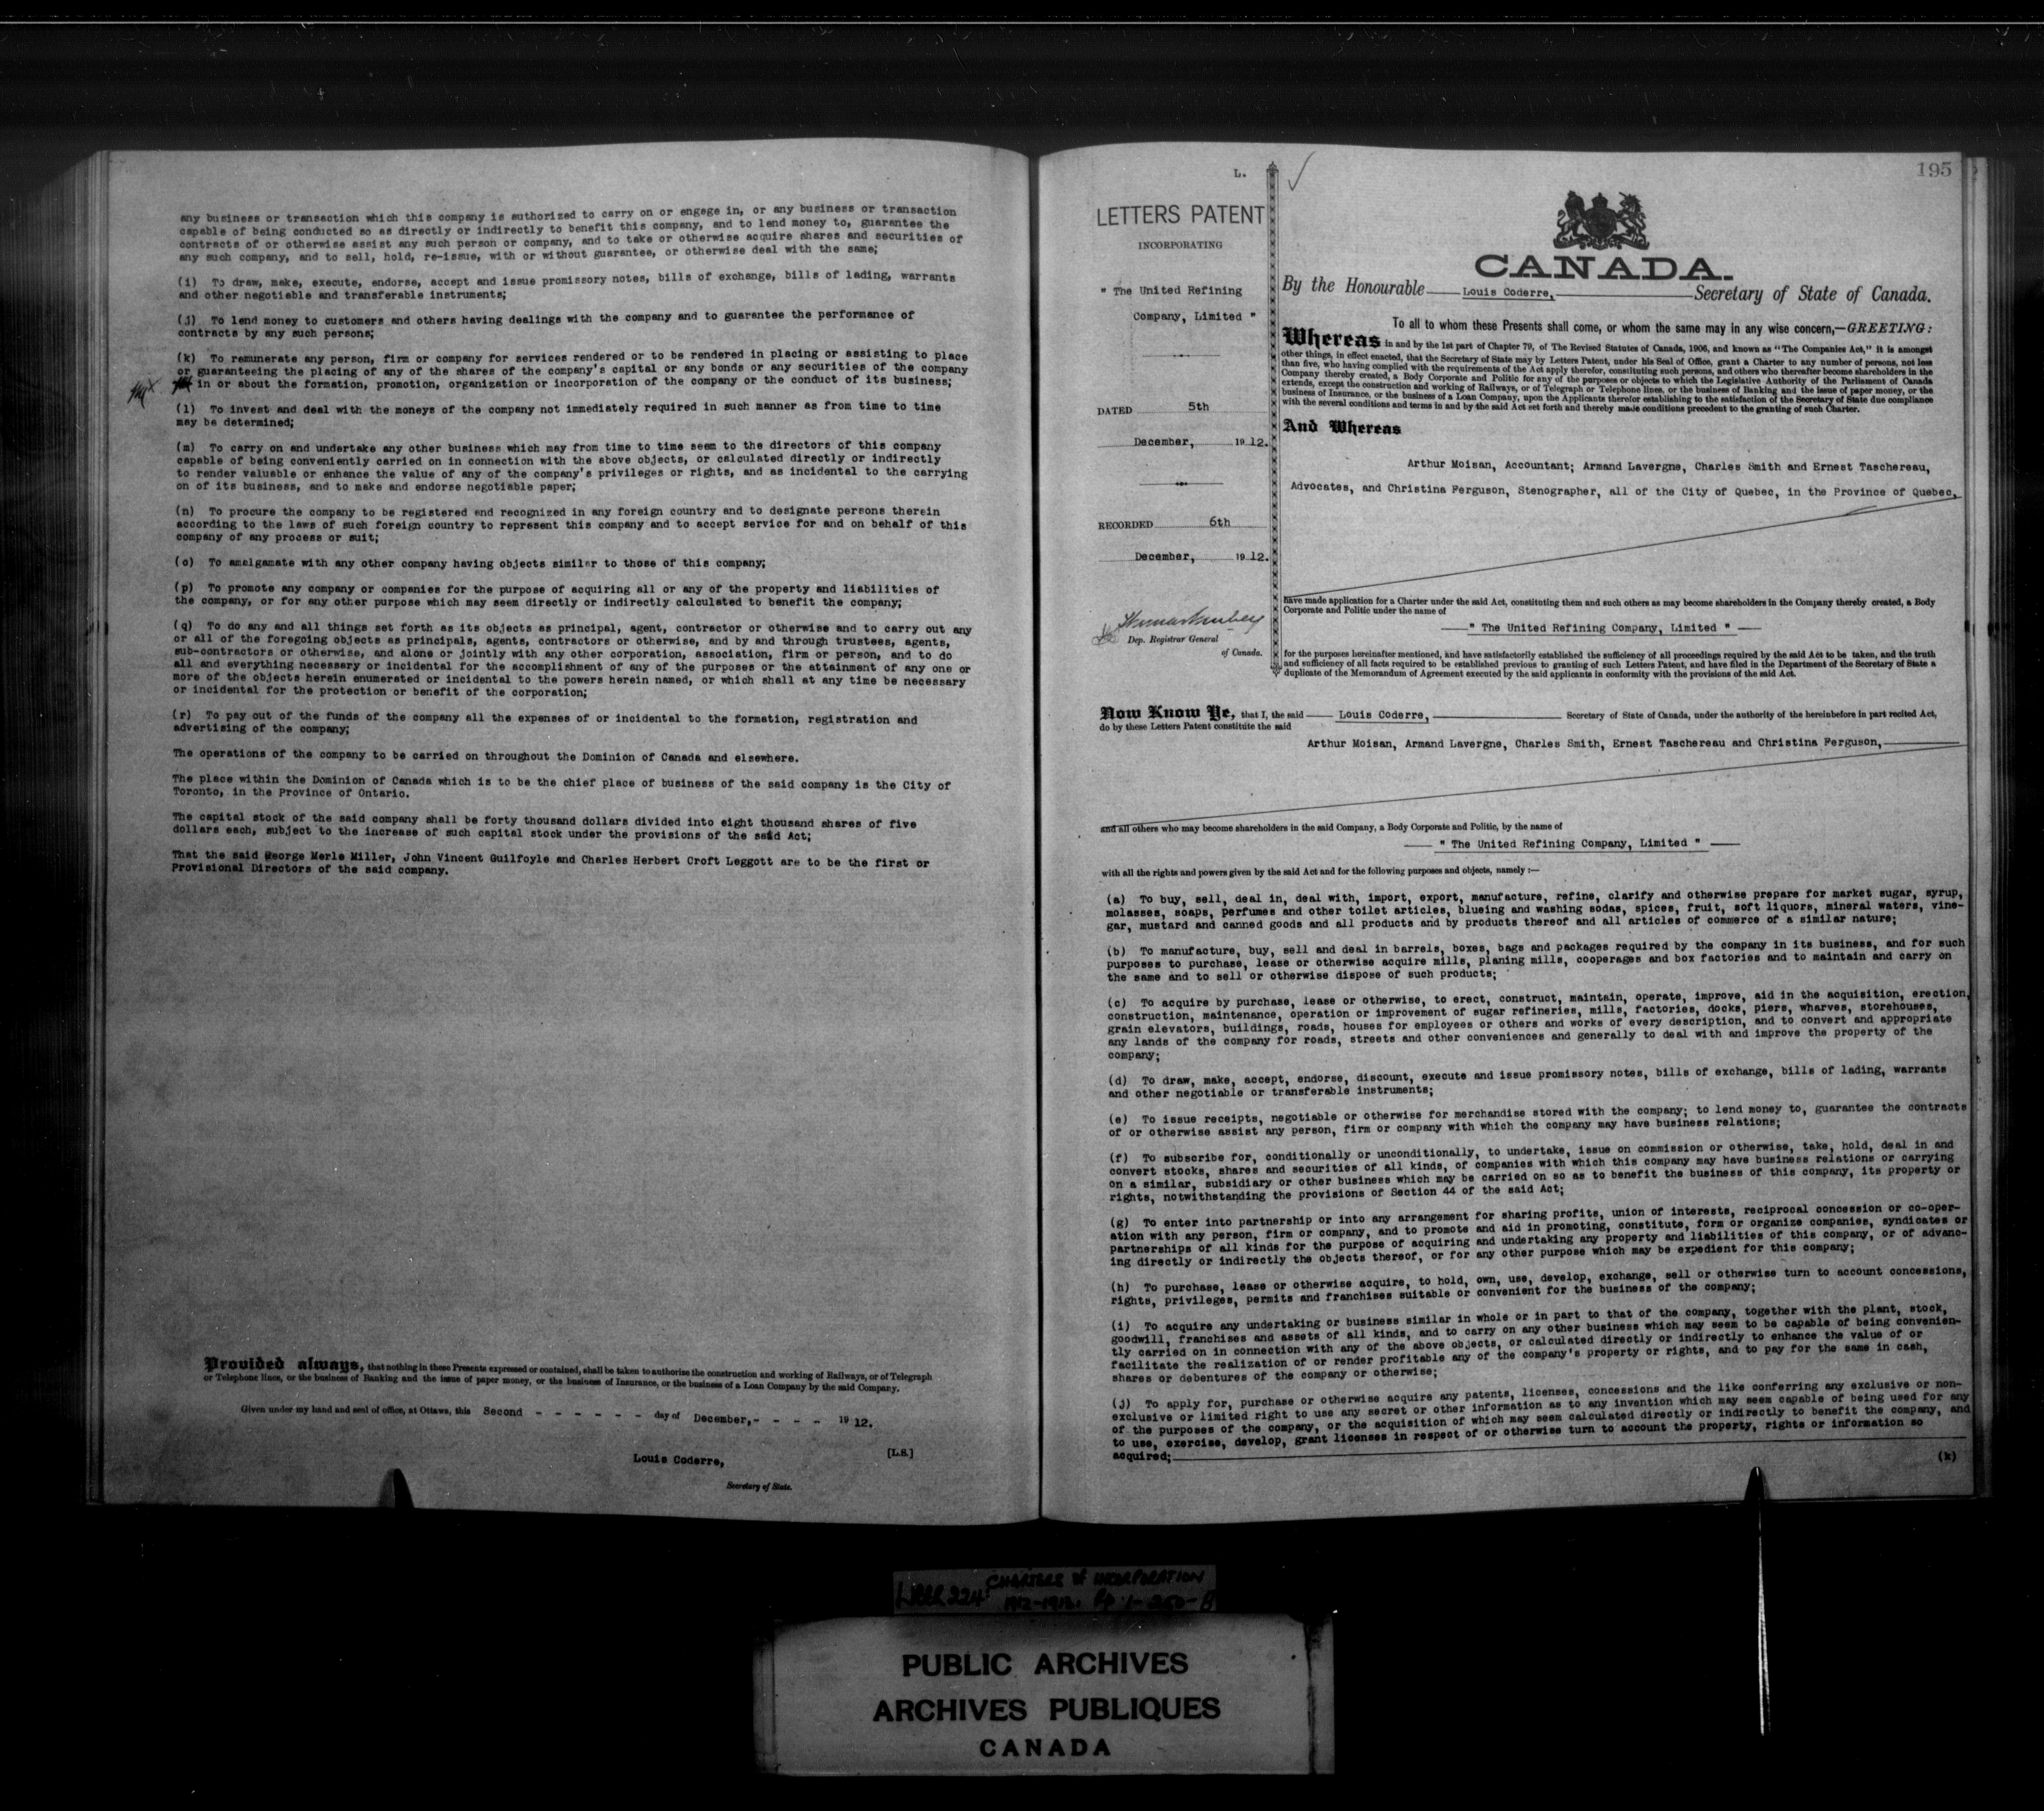 any business or transaction which this company is authorized to carry on or engege in, or any business or transaction
capable of being conducted so as directly or indirectly to benefit this company, and to lend money to, guarantee the
contracts of or otherwise assist any such person or company, and to take or otherwise acquire shares and securities of
any such company, and to sell, hold, re-issue, with or without guarantee, or otherwise deal with the same;
(i) To draw, make, execute, endorse, accept and issue promissory notes, bills of exchange, bills of lading, warrants
and other negotiable and transferable instruments;
(j) To lend money to customers and others having dealings with the company and to guarantee the performance of
contracts by any such persons;
(k) To remunerate any person, firm or company for services rendered or to be rendered in placing or assisting to place
or guaranteeing the placing of any of the shares of the company's capital or any bonds or any securities of the company
in or about the formation, promotion, organization or incorporation of the company or the conduct of its business;
(l) To invest and deal with the moneys of the company not immediately required in such manner as from time to time
may be determined;
(m) To carry on and undertake any other business which may from time to time seem to the directors of this company
capable of being conveniently carried on in connection with the above objects, or calculated directly or indirectly
to render valuable or enhance the value of any of the company's privileges or rights, and as incidental to the carrying
on of its business, and to make and endorse negotiable paper;
(n) To procure the company to be registered and recognized in any foreign country and to designate persons therein
according to the laws of such foreign country to represent this company and to accept service for and on behalf of this
company of any process or suit;
(o) To amalgamate with any other company having objects similar to those of this company;
(p) To promote any company or companies for the purpose of acquiring all or any of the property and liabilities of
the company, or for any other purpose which may seem directly or indirectly calculated to benefit the company;
(q) To do any and all things set forth as its objects as principal, agent, contractor or otherwise and to carry out any
or all of the foregoing objects as principals, agents, contractors or otherwise, and by and through trustees, agents,
sub-contractors or otherwise, and alone or jointly with any other corporation, association, firm or person, and to do
all and everything necessary or incidental for the accomplishment of any of the purposes or the attainment of any one or
more of the objects herein enumerated or incidental to the powers herein named, or which shall at any time be necessary
or incidental for the protection or benefit of the corporation;
(r) To pay out of the funds of the company all the expenses of or incidental to the formation, registration and
advertising of the company;
The operations of the company to be carried on throughout the Dominion of Canada and elsewhere.
The place within the Dominion of Canada which is to be the chief place of business of the said company is the City of
Toronto, in the Province of Ontario.
The capital stock of the said company shall be forty thousand dollars divided into eight thousand shares of five
dollars each, subject to the increase of such capital stock under the provisions of the said Act;
That the said George Merle Miller, John Vincent Guilfoyle and Charles Herbert Croft Leggott are to be the first or
Provisional Directors of the said company.
Provided always, that nothing in these Presents expressed or contained, shall be taken to authorize the construction and working of Railways, or of Telegraph
or Telephone lines, or the business of Banking and the issue of paper money, or the business of Insurance, or the business of a Loan Company by the said Company.
Given under my hand and seal of office, at Ottawa, this Second - - - - - - day of December,- - - - 1912.
[L.S.]
Louis Coderre,
Secretary of State.
195
L.
LETTERS PATENT
INCORPORATING
" The United Refining
Company, Limited "
DATED 5th
December, 1912.
RECORDED 6th
December, 1912.
Dep. Registrar General
of Canada.
CANADA.
By the Honourable Louis Coderre, Secretary of State of Canada.
To all to whom these Presents shall come, or whom the same may in any wise concern,—GREETING:
Whereas in and by the 1st part of Chapter 79, of The Revised Statutes of Canada, 1906, and known as "The Companies Act," it is amongst
other things, in effect enacted, that the Secretary of State may by Letters Patent, under his Seal of Office, grant a Charter to any number of persons, not less
than five, who having complied with the requirements of the Act apply therefor, constituting such persons, and others who thereafter become shareholders in the
Company thereby created, a Body Corporate and Politic for any of the purposes or objects to which the Legislative Authority of the Parliament of Canada
extends, except the construction and working of Railways, or of Telegraph or Telephone lines, or the business of Banking and the issue of paper money, or the
business of Insurance, or the business of a Loan Company, upon the Applicants therefor establishing to the satisfaction of the Secretary of State due compliance
with the several conditions and terms in and by the said Act set forth and thereby made conditions precedent to the granting of such Charter.
And Whereas
Arthur Moisan, Accountant; Armand Lavergne, Charles Smith and Ernest Taschereau,
Advocates, and Christina Ferguson, Stenographer, all of the City of Quebec, in the Province of Quebec,
have made application for a Charter under the said Act, constituting them and such others as may become shareholders in the Company thereby created, a Body
Corporate and Politic under the name of
" The United Refining Company, Limited "
for the purposes hereinafter mentioned, and have satisfactorily established the sufficiency of all proceedings required by the said Act to be taken, and the truth
and sufficiency of all facts required to be established previous to granting of such Letters Patent, and have filed in the Department of the Secretary of State a
duplicate of the Memorandum of Agreement executed by the said applicants in conformity with the provisions of the said Act.
Now Know Ye, that I, the said Louis Coderre, Secretary of State of Canada, under the authority of the hereinbefore in part recited Act,
do by these Letters Patent constitute the said
Arthur Moisan, Armand Lavergne, Charles Smith, Ernest Taschereau and Christina Ferguson,
and all others who may become shareholders in the said Company, a Body Corporate and Politic, by the name of
" The United Refining Company, Limited "
with all the rights and powers given by the said Act and for the following purposes and objects, namely :—
(a) To buy, sell, deal in, deal with, import, export, manufacture, refine, clarify and otherwise prepare for market sugar, syrup,
molasses, soaps, perfumes and other toilet articles, blueing and washing sodas, spices, fruit, soft liquors, mineral waters, vine-
gar, mustard and canned goods and all products and by products thereof and all articles of commerce of a similar nature;
(b) To manufacture, buy, sell and deal in barrels, boxes, bags and packages required by the company in its business, and for such
purposes to purchase, lease or otherwise acquire mills, planing mills, cooperages and box factories and to maintain and carry on
the same and to sell or otherwise dispose of such products;
(c) To acquire by purchase, lease or otherwise, to erect, construct, maintain, operate, improve, aid in the acquisition, erection,
construction, maintenance, operation or improvement of sugar refineries, mills, factories, docks, piers, wharves, storehouses,
grain elevators, buildings, roads, houses for employees or others and works of every description, and to convert and appropriate
any lands of the company for roads, streets and other conveniences and generally to deal with and improve the property of the
company;
(d) To draw, make, accept, endorse, discount, execute and issue promissory notes, bills of exchange, bills of lading, warrants
and other negotiable or transferable instruments;
(e) To issue receipts, negotiable or otherwise for merchandise stored with the company; to lend money to, guarantee the contracts
of or otherwise assist any person, firm or company with which the company may have business relations;
(f) To subscribe for, conditionally or unconditionally, to undertake, issue on commission or otherwise, take, hold, deal in and
convert stocks, shares and securities of all kinds, of companies with which this company may have business relations or carrying
on a similar, subsidiary or other business which may be carried on so as to benefit the business of this company, its property or
rights, notwithstanding the provisions of Section 44 of the said Act;
(g) To enter into partnership or into any arrangement for sharing profits, union of interests, reciprocal concession or co-oper-
ation with any person, firm or company, and to promote and aid in promoting, constitute, form or organize companies, syndicates or
partnerships of all kinds for the purpose of acquiring and undertaking any property and liabilities of this company, or of advanc-
ing directly or indirectly the objects thereof, or for any other purpose which may be expedient for this company;
(h) To purchase, lease or otherwise acquire, to hold, own, use, develop, exchange, sell or otherwise turn to account concessions,
rights, privileges, permits and franchises suitable or convenient for the business of the company;
(i) To acquire any undertaking or business similar in whole or in part to that of the company, together with the plant, stock,
goodwill, franchises and assets of all kinds, and to carry on any other business which may seem to be capable of being convenien-
tly carried on in connection with any of the above objects, or calculated directly or indirectly to enhance the value of or
facilitate the realization of or render profitable any of the company's property or rights, and to pay for the same in cash,
shares or debentures of the company or otherwise;
(j) To apply for, purchase or otherwise acquire any patents, licenses, concessions and the like conferring any exclusive or non-
exclusive or limited right to use any secret or other information as to any invention which may seem capable of being used for any
of the purposes of the company, or the acquisition of which may seem calculated directly or indirectly to benefit the company, and
to use, exercise, develop, grant licenses in respect of or otherwise turn to account the property, rights or information so
acquired;
(k)
CHARTERS of INCORPORATION
1912-1913. Pp. 1-250-B
PUBLIC ARCHIVES
ARCHIVES PUBLIQUES
CANADA